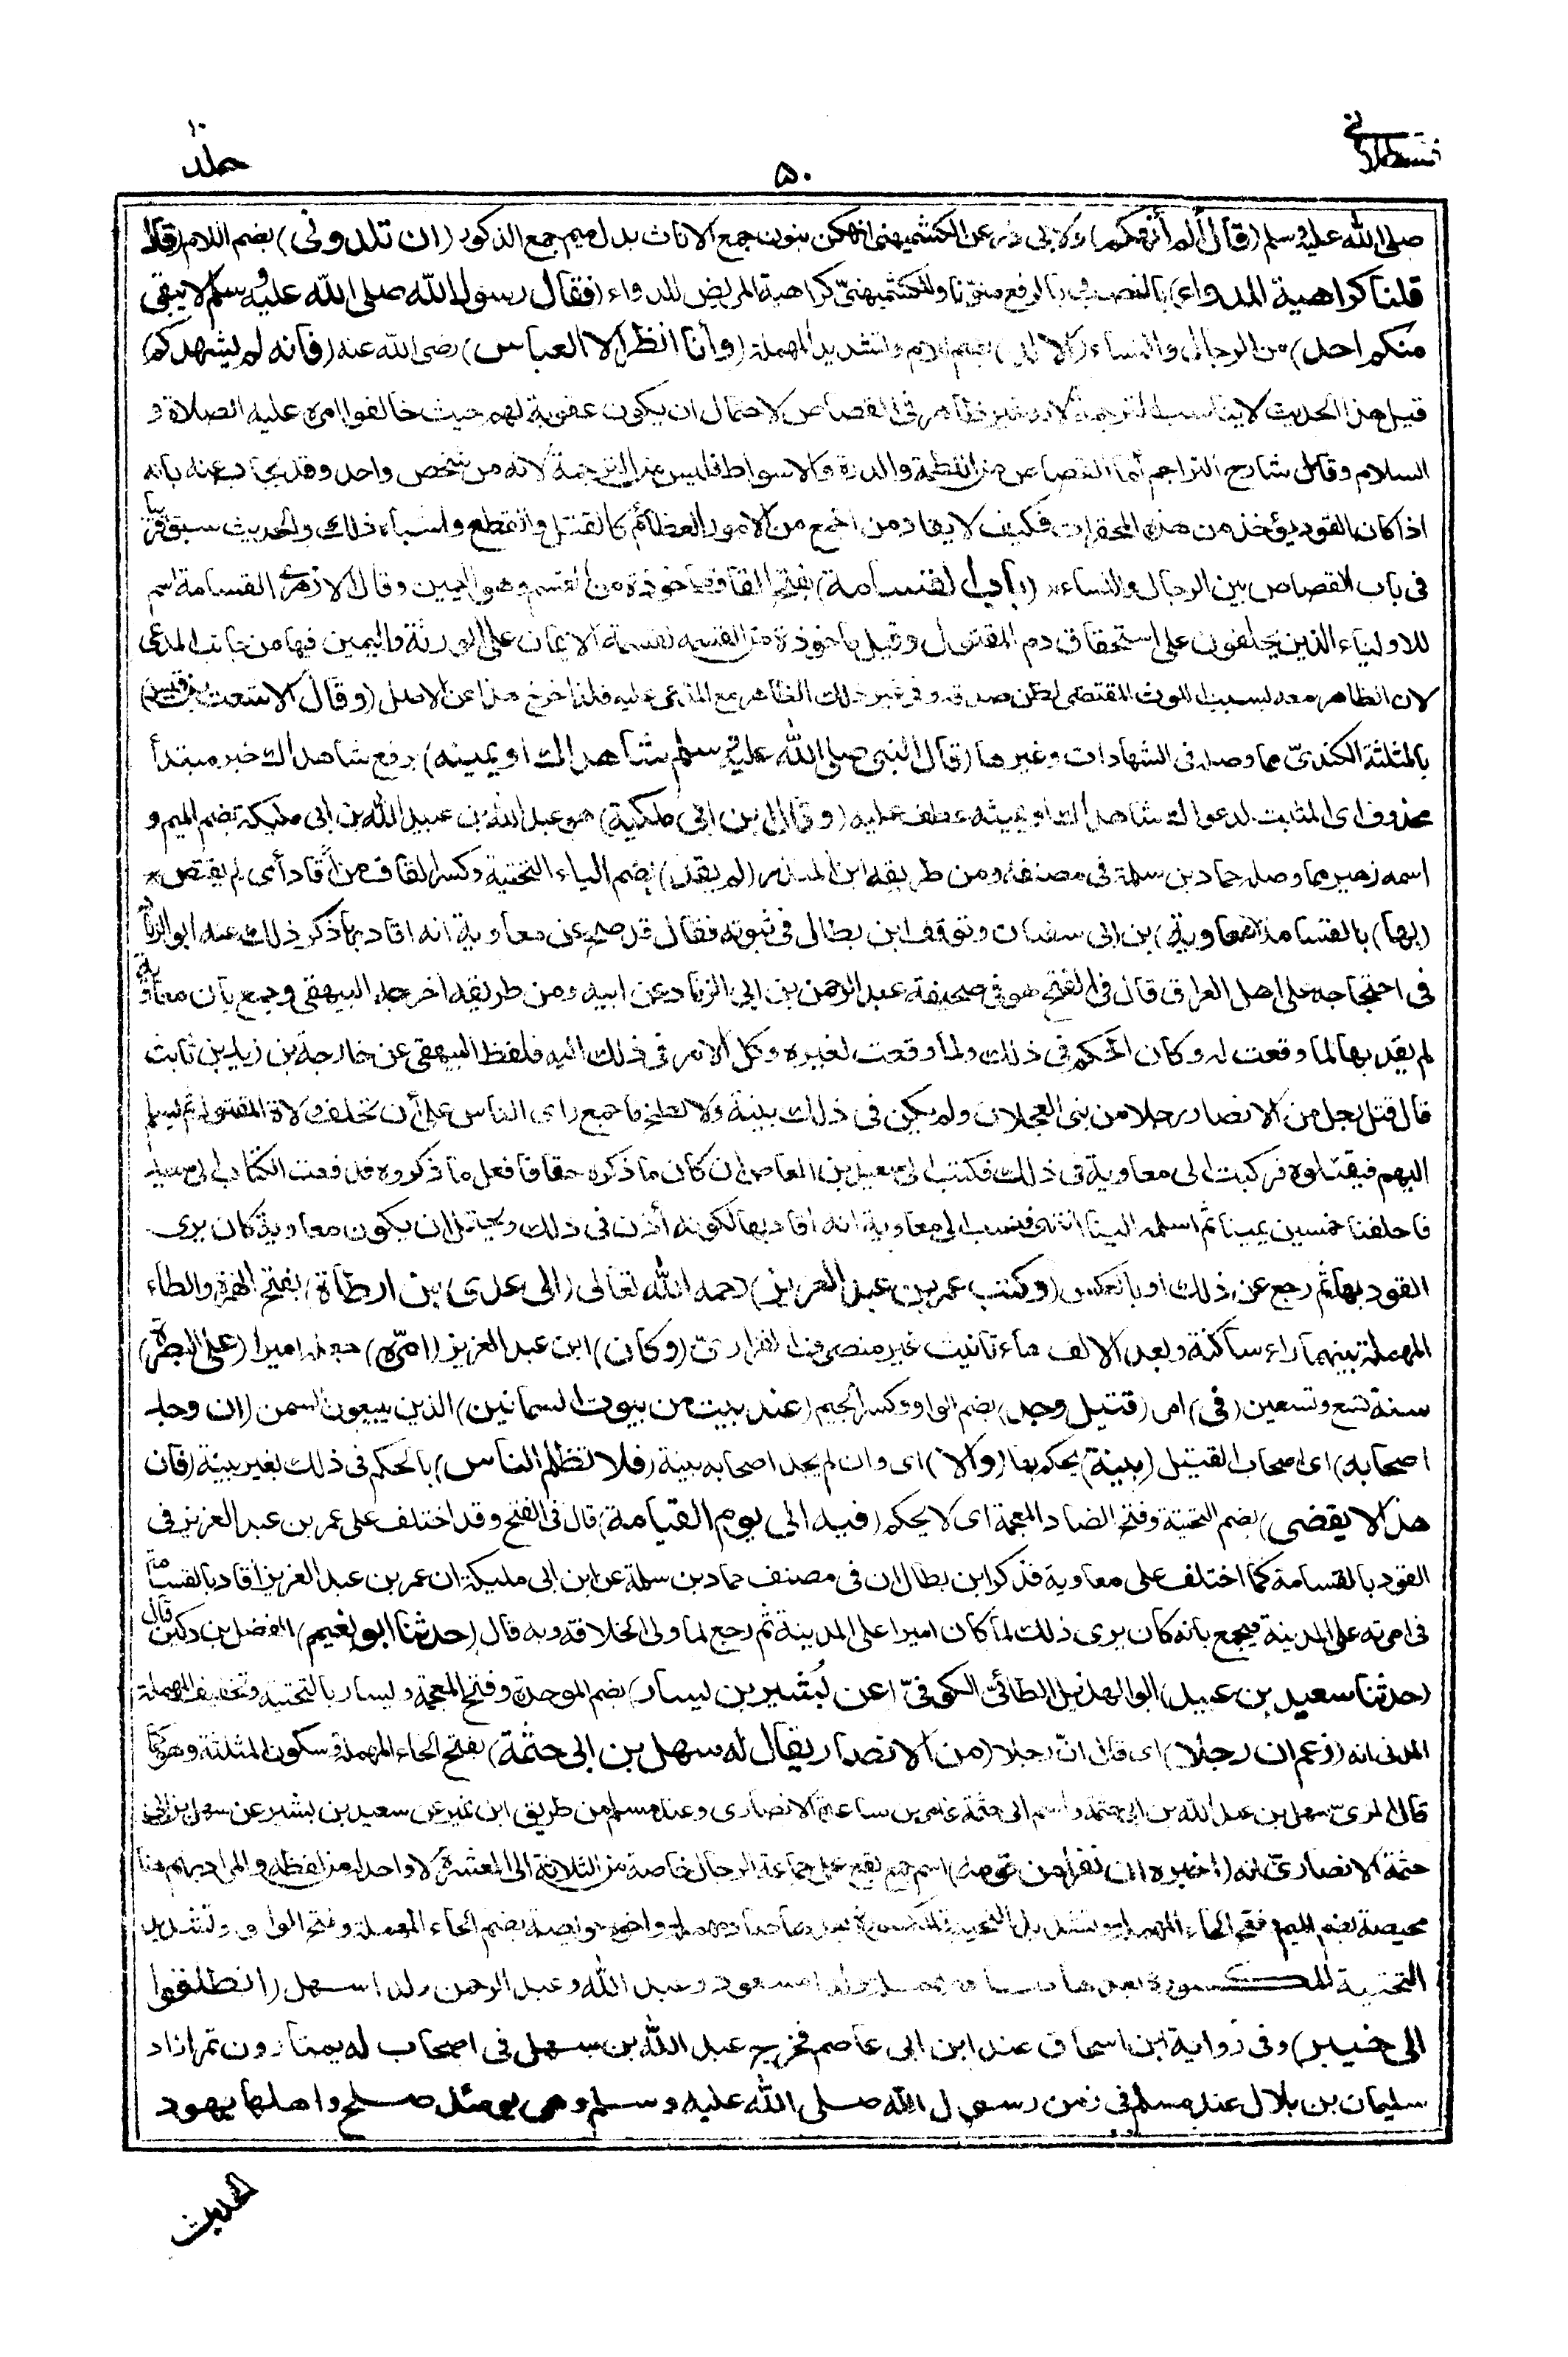 قسطلاني
٥٠
جلد ١٠
صلى الله عليه وسلم (قال ألم أنهكم) ولابى ذر عن الكشميهنى انهكن بنون جمع الاناث بدل ميم جمع الذكور (ان تلدونى) بضم اللام (قال
قلنا كراهية للدواء) بالنصب فى بالرفع منوّنا وللكشميهنىّ كراهية المريض للدواء (فقال رسول الله صلى الله عليه وسلم لا يبقى
منكم احد) من الرجال والنساء (الا لد) بضم اللام وتشديد المهملة (وأنا انظر الا العباس) رضى الله عنه (فانه لم يشهدكم)
قيل هذا الحديث لا يناسب الترجمة لانه غير ظاهر فى القصاص لاحتمال ان يكون عقوبة لهم حيث خالفوا امره عليه الصلاة و
السلام وقال شارح التراجم أمّا القصاص من اللطمة والدرة والاسواط فليس من الترجمة لانه من شخص واحد وقد يجاب عنه بانه
اذا كان القود يؤخذ من هذه المحقرات فكيف لا يقاد من الجمع من الامور العظائم كالقتل والقطع واشباه ذلك والحديث سبق قريبا
فى باب القصاص بين الرجال والنساء (باب القسامة) بفتح القاف مأخوذة من القسم وهو اليمين وقال الازهرى القسامة اسم
للاولياء الذين يحلفون على استحقاق دم المقتول وقيل مأخوذة من القسمة لقسمة الايمان على الورثة واليمين فيها من جانب المدعى
لان الظاهر معه بسبب اللوث المقتضى لظن صدقه وفى غير ذلك الظاهر مع المدعى عليه فلذا خرج هذا عن الاصل (وقال الاشعث بن قيس)
بالمثلثة الكندىّ مما وصله فى الشهادات وغيرها (قال النبى صلى الله عليه وسلم شاهداك أو يمينه) برفع شاهداك خبر مبتدأ
محذوف اى المثبت لدعواك شاهداك او يمينه عطف عليه (وقال ابن ابى مليكة) هو عبد الله بن عبيد الله بن ابى مليكة بضم الميم و
اسمه زهير مما وصله حماد بن سلمة فى مصنفه ومن طريقه ابن المنذر (لم يقد) بضم الياء التحتية وكسر القاف من أقاد أى لم يقتص
(بها) بالقسامة (معاوية) بن ابى سفيان وتوقف ابن بطال فى ثبوته فقال قد صح عن معاوية انه اقاد بها ذكر ذلك عنه ابو الزناد
فى احتجاجه على اهل العراق قال فى الفتح هو فى صحيفة عبد الرحمن بن ابى الزناد عن ابيه ومن طريقه اخرجه البيهقى وجمع بأن معاوية
لم يقد بها لما وقعت له وكان الحكم فى ذلك ولما وقعت لغيره وكل الامر فى ذلك اليه فلفظ البيهقى عن خارجة بن زيد بن ثابت
قال قتل رجل من الانصار رجلا من بنى العجلان ولم يكن فى ذلك بينة ولا لطخ فاجمع راى الناس على أن تحلف ولاة المقتول ثم يسلم
اليهم فيقتلوه فركبت الى معاوية فى ذلك فكتب الى سعيد بن العاص ان كان ما ذكره حقا فافعل ما ذكروه فدفعت الكتاب الى سعيد
فاحلفنا خمسين يمينا ثم اسلمه الينا انتهى فنسب الى معاوية انه اقاد بها لكونه أذن فى ذلك ويحتمل ان يكون معاوية كان يرى
القود بها ثم رجع عن ذلك او بالعكس (وكتب عمر بن عبد العزيز) رحمه الله تعالى (الى عدى بن ارطاة) بفتح الهمزة والطاء
المهملة بينهما راء ساكنة وبعد الالف هاء تانيث غير منصرف الفزارىّ (وكان) ابن عبد العزيز (امّره) جعله اميرا (على البصرة)
سنة تسع وتسعين (فى) امر (قتيل وجد) بضم الواو وكسر الجيم (عند بيت من بيوت السمانين) الذين يبيعون السمن (ان وجد
اصحابه) اى اصحاب القتيل (بينة) يحكم بها (والا) اى وان لم يجد اصحابه بينة (فلا تظلم الناس) بالحكم فى ذلك بغير بينة (فان
هذا لا يقضى) بضم التحتية وفتح الضاد المعجمة اى لا يحكم (فيه الى يوم القيامة) قال فى الفتح وقد اختلف على عمر بن عبد العزيز فى
القود بالقسامة كما اختلف على معاوية فذكر ابن بطال ان فى مصنف حماد بن سلمة عن ابن ابى مليكة ان عمر بن عبد العزيز أقاد بالقسامة
فى امرته على المدينة فيجمع بانه كان يرى ذلك لما كان اميرا على المدينة ثم رجع لما ولى الخلافة وبه قال (حدثنا ابو نعيم) الفضل بن دكين قال
(حدثنا سعيد بن عبيد) ابو الهذيل الطائىّ الكوفىّ (عن بُشير بن يسار) بضم الموحدة وفتح المعجمة ويسار بالتحتية وتخفيف المهملة
المدنى انه (زعم ان رجلا) اى قال انّ رجلا (من الانصار يقال له سهل بن ابى حثمة) بفتح الحاء المهملة وسكون المثلثة وهو كما
قال المزىّ سهل بن عبد الله بن ابى حثمة واسم ابى حثمة عامر بن ساعدة الانصارى وعند مسلم من طريق ابن نمير عن سعيد بن بشير عن سهل بن ابى
حثمة الانصارىّ انه (اخبره ان نفرا من قومه) اسم جمع يقع على جماعة الرجال خاصة من الثلاثة الى العشرة لا واحد له من لفظه والمراد بهم هنا
محيصة بضم الميم وفتح الحاء المهملة وتشديد التحتية المكسورة بعدها صاد مهملة واخوه حويصة بضم الحاء المهملة وفتح الواو وتشديد
التحتية المكسورة بعدها صاد مهملة ولدا مسعود وعبد الله وعبد الرحمن ولدا سهل (انطلقوا
الى خيبر) وفى رواية ابن اسحاق عند ابن ابى عاصم فخرج عبد الله بن سهل فى اصحاب له يمتارون تمرا زاد
سليمان بن بلال عند مسلم فى زمن رسول الله صلى الله عليه وسلم وهى يومئذ صلح واهلها يهود
الحديث